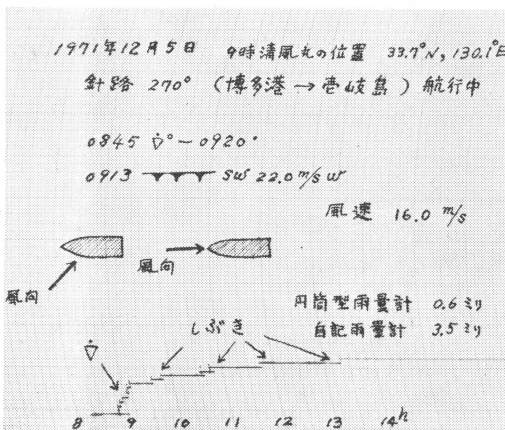 1971年12月5日 9時清風丸の位置 33.7°N, 130.1°E
針路 270° (博多港→壱岐島) 航行中
0845 ▽° — 0920
0913 SW 22.0 m/s W
風速 16.0 m/s
風向
風向
円筒型雨量計 0.6ミリ
自記雨量計 3.5ミリ
しぶき
8 9 10 11 12 13 14h